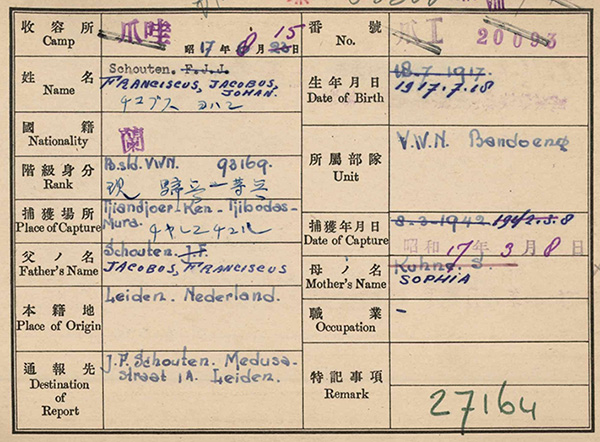 收容所
Camp
爪哇
昭 17 年 8 月 15 23 日
番號
No.
爪 工 20093
姓名
Name
Schouten. F.J.J.
FRANCISCUS, JACOBUS,
JOHAN.
生年月日
Date of Birth
18.7.1917.
1917.7.18
國籍
Nationality
蘭
所屬部隊
Unit
V.W.N. Bandoeng
階級身分
Rank
B.sld. VWN. 93169.
捕獲場所
Place of Capture
Tjiandjoer-Ken-Tjibodas-
Mura.
捕獲年月日
Date of Capture
8-3-1942 1942.3.8
昭和 17 年 3 月 8 日
父ノ名
Father's Name
Schouten. J.F.
JACOBUS, FRANCISCUS
母ノ名
Mother's Name
Kuhne. S.
SOPHIA
本籍地
Place of Origin
Leiden. Nederland.
職業
Occupation
-
通報先
Destination of
Report
J.F. Schouten. Medusa-
straat 1A. Leiden.
特記事項
Remark
27164